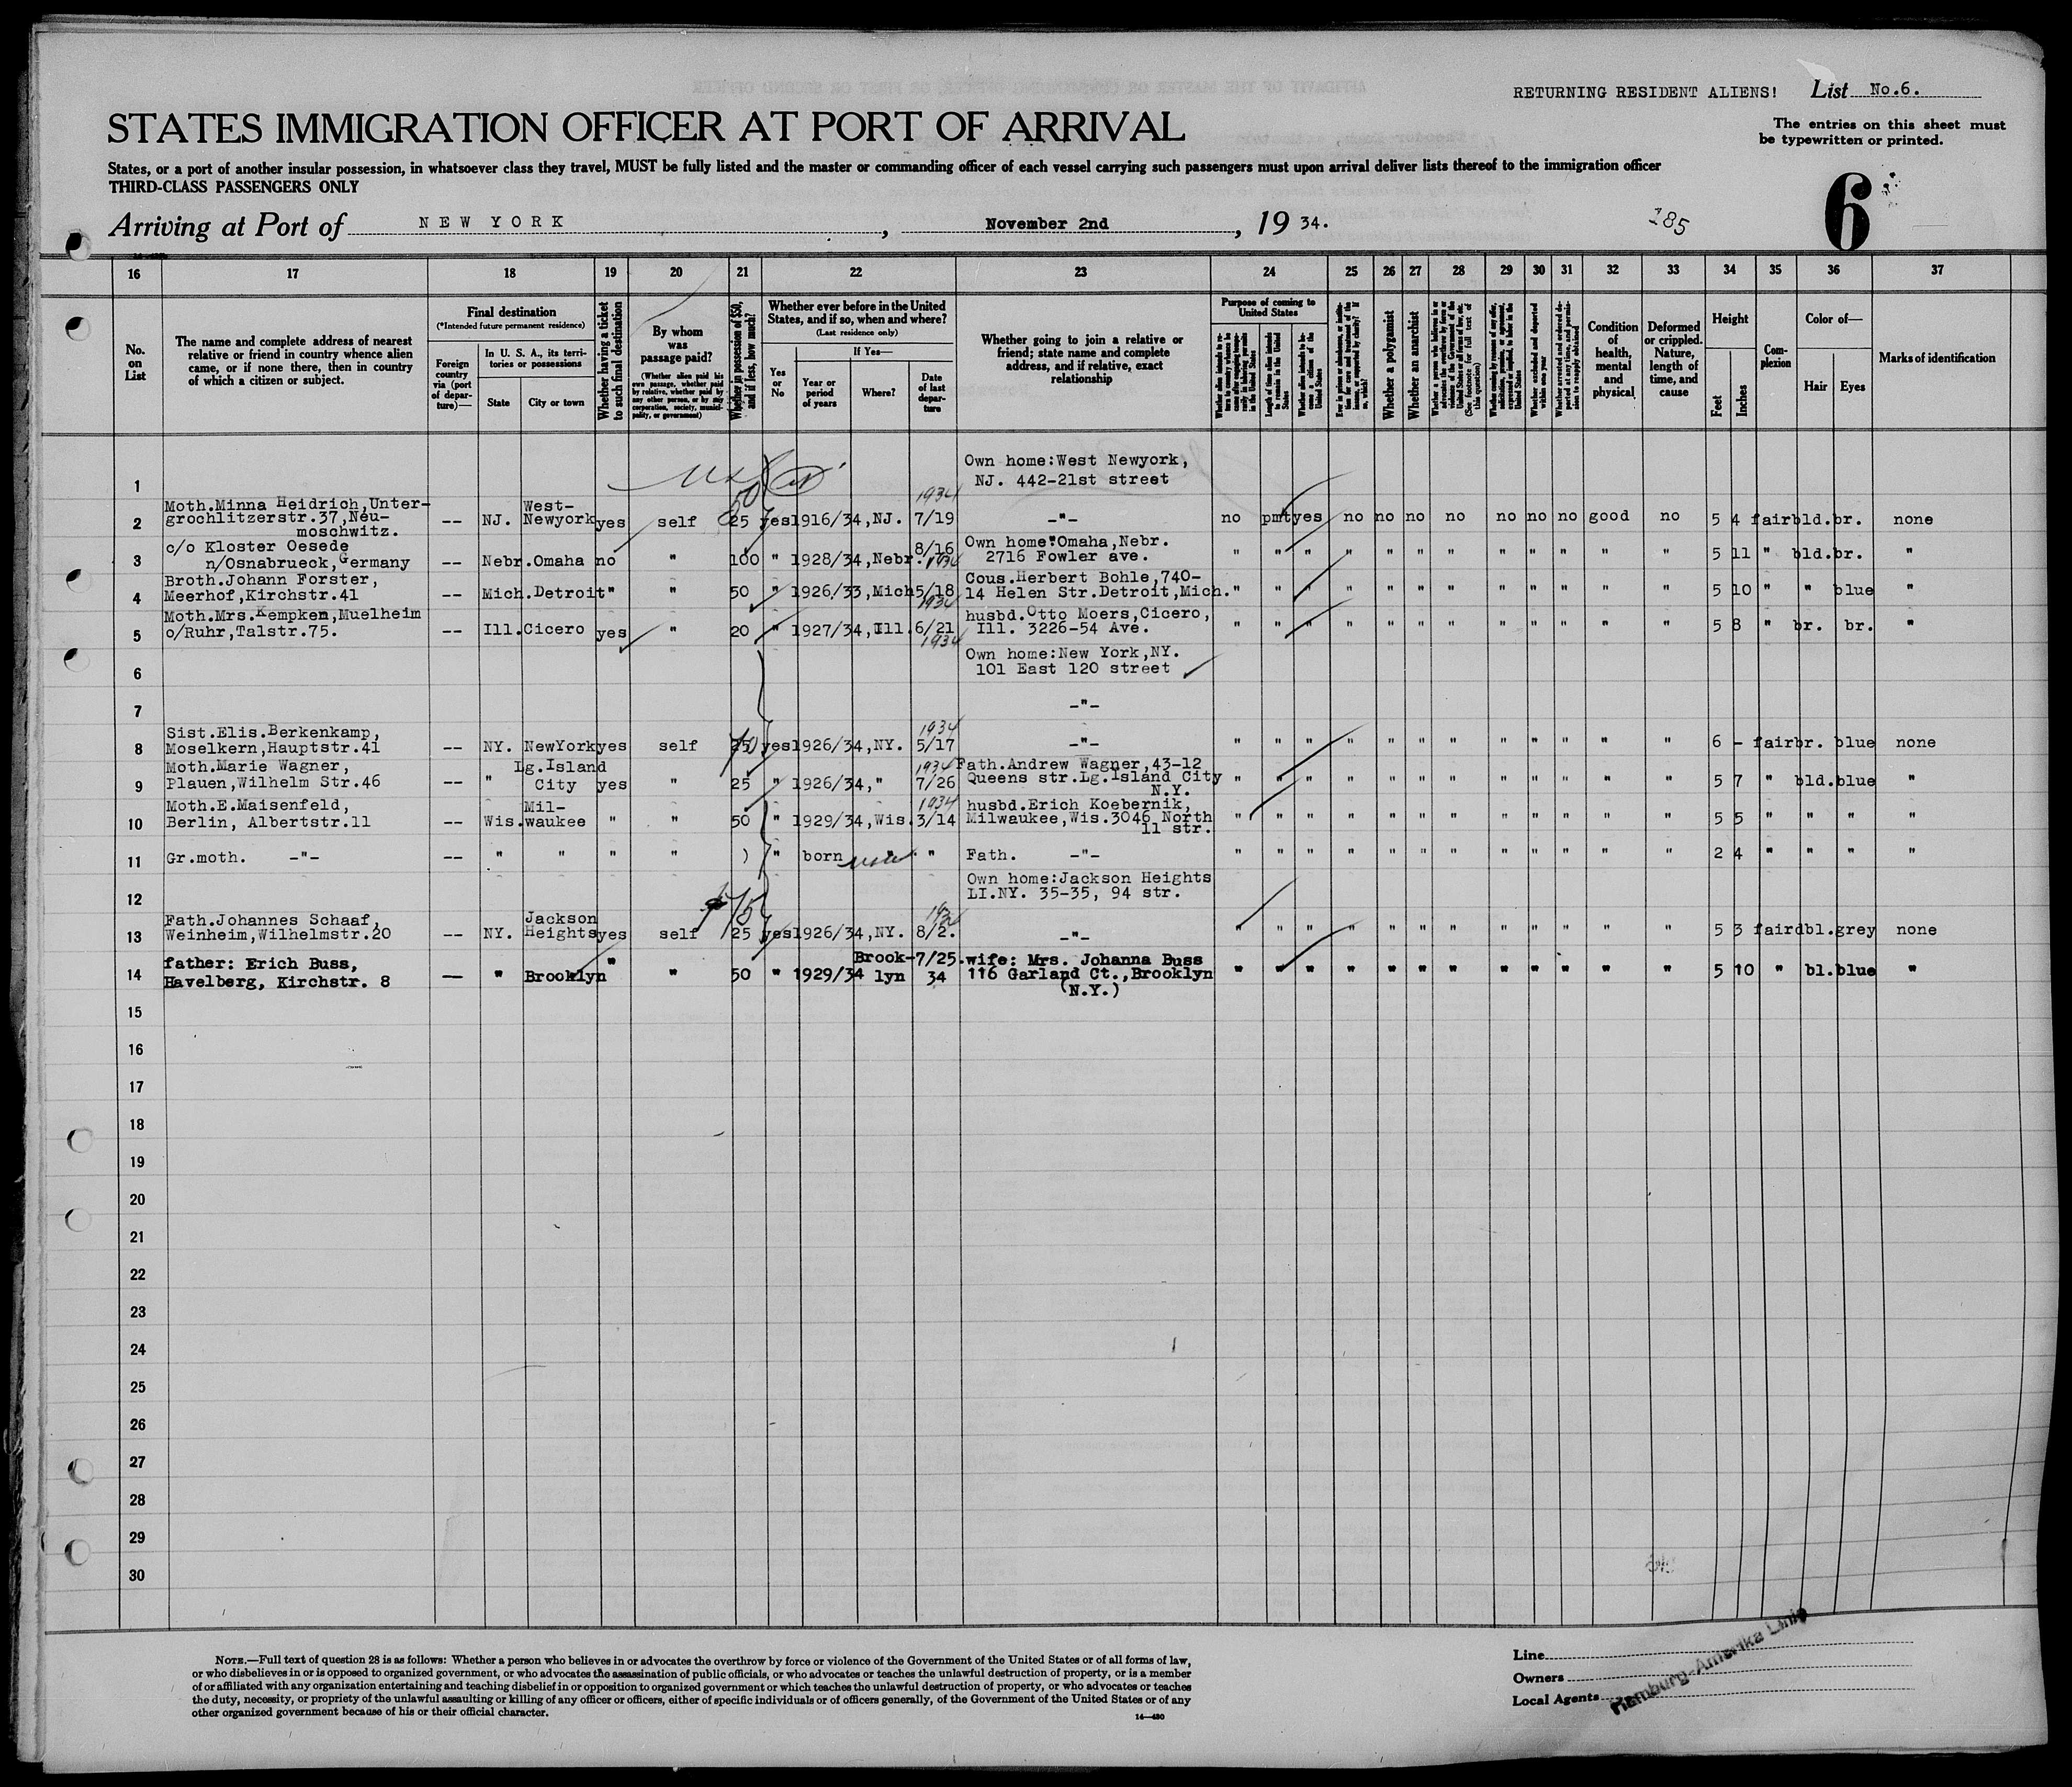 RETURNING RESIDENT ALIENS! List No.6.
STATES IMMIGRATION OFFICER AT PORT OF ARRIVAL
The entries on this sheet must
be typewritten or printed.
States, or a port of another insular possession, in whatsoever class they travel, MUST be fully listed and the master or commanding officer of each vessel carrying such passengers must upon arrival deliver lists thereof to the immigration officer
THIRD-CLASS PASSENGERS ONLY
6
Arriving at Port of NEW YORK, November 2nd, 19 34. 185
16 17 18 19 20 21 22 23 24 25 26 27 28 29 30 31 32 33 34 35 36 37
No. on List
The name and complete address of nearest relative or friend in country whence alien came, or if none there, then in country of which a citizen or subject.
Final destination
(*Intended future permanent residence)
Foreign country via (port of departure)—
In U. S. A., its territories or possessions
State
City or town
Whether having a ticket to such final destination
By whom was passage paid?
(Whether alien paid his own passage, whether paid by relative, whether paid by any other person, or by any corporation, society, municipality, or government)
Whether in possession of $50, and if less, how much?
Whether ever before in the United States, and if so, when and where?
(Last residence only)
Yes or No
If Yes—
Year or period of years
Where?
Date of last departure
Whether going to join a relative or friend; state name and complete address, and if relative, exact relationship
Purpose of coming to United States
Length of time alien intends to remain in the United States
Whether alien intends to become a citizen of the United States
Whether a polygamist
Whether an anarchist
(See footnote for full text of this question)
Whether excluded and deported within one year
Condition of health, mental and physical
Deformed or crippled. Nature, length of time, and cause
Height
Feet
Inches
Complexion
Color of—
Hair
Eyes
Marks of identification
1 Own home:West Newyork,
NJ. 442-21st street
2 Moth.Minna Heidrich,Unter-
grochlitzerstr.37,Neu-
moschwitz. -- NJ. West-
Newyork yes self 25 50 yes 1916/34,NJ. 7/19 1934 -"- no pmt yes no no no no no no no good no 5 4 fair bld. br. none
3 c/o Kloster Oesede
n/Osnabrueck,Germany -- Nebr. Omaha no " 100 " 1928/34,Nebr. 8/16 1934 Own home:Omaha,Nebr.
2716 Fowler ave. " " " " " " " " " " " " 5 11 " bld. br. "
4 Broth.Johann Forster,
Meerhof,Kirchstr.41 -- Mich. Detroit " " 50 " 1926/33,Mich 5/18 1934 Cous.Herbert Bohle,740-
14 Helen Str.Detroit,Mich. " " " " " " " " " " " " 5 10 " " blue "
5 Moth.Mrs.Kempken,Muelheim
o/Ruhr,Talstr.75. -- Ill. Cicero yes " 20 " 1927/34,Ill. 6/21 1934 husbd.Otto Moers,Cicero,
Ill. 3226-54 Ave. " " " " " " " " " " " " 5 8 " br. br. "
6 Own home:New York,NY.
101 East 120 street
7 -"-
8 Sist.Elis.Berkenkamp,
Moselkern,Hauptstr.41 -- NY. NewYork yes self yes 1926/34,NY. 1934 5/17 -"- " " " " " " " " " " " " 6 - fair br. blue none
9 Moth.Marie Wagner,
Plauen,Wilhelm Str.46 -- " Lg.Island
City yes " 25 " 1926/34," 1934 7/26 Fath.Andrew Wagner,43-12
Queens str.Lg.Island City
N.Y. " " " " " " " " " " " " 5 7 " bld. blue "
10 Moth.E.Maisenfeld,
Berlin, Albertstr.11 -- Wis. Mil-
waukee " " 50 " 1929/34,Wis. 1934 3/14 husbd.Erich Koebernik,
Milwaukee,Wis.3046 North
11 str. " " " " " " " " " " " " 5 5 " " " "
11 Gr.moth. -"- -- " " " " ) " born " " Fath. -"- " " " " " " " " " " " " 2 4 " " " "
12 Own home:Jackson Heights
LI.NY. 35-35, 94 str.
13 Fath.Johannes Schaaf,
Weinheim,Wilhelmstr.20 -- NY. Jackson
Heights yes self 25 yes 1926/34,NY. 8/2. -"- " " " " " " " " " " " " 5 3 fair dbl. grey none
14 father: Erich Buss,
Havelberg, Kirchstr. 8 — " Brooklyn " " 50 " 1929/34 Brook-
lyn 7/25.
34 wife: Mrs. Johanna Buss
116 Garland Ct.,Brooklyn
(N.Y.) " " " " " " " " " " " " 5 10 " bl. blue "
15
16
17
18
19
20
21
22
23
24
25
26
27
28
29
30
NOTE.—Full text of question 28 is as follows: Whether a person who believes in or advocates the overthrow by force or violence of the Government of the United States or of all forms of law,
or who disbelieves in or is opposed to organized government, or who advocates the assassination of public officials, or who advocates or teaches the unlawful destruction of property, or is a member
of or affiliated with any organization entertaining and teaching disbelief in or opposition to organized government or which teaches the unlawful destruction of property, or who advocates or teaches
the duty, necessity, or propriety of the unlawful assaulting or killing of any officer or officers, either of specific individuals or of officers generally, of the Government of the United States or of any
other organized government because of his or their official character.
14—430
Line
Owners
Local Agents
Hamburg-Amerika Linie